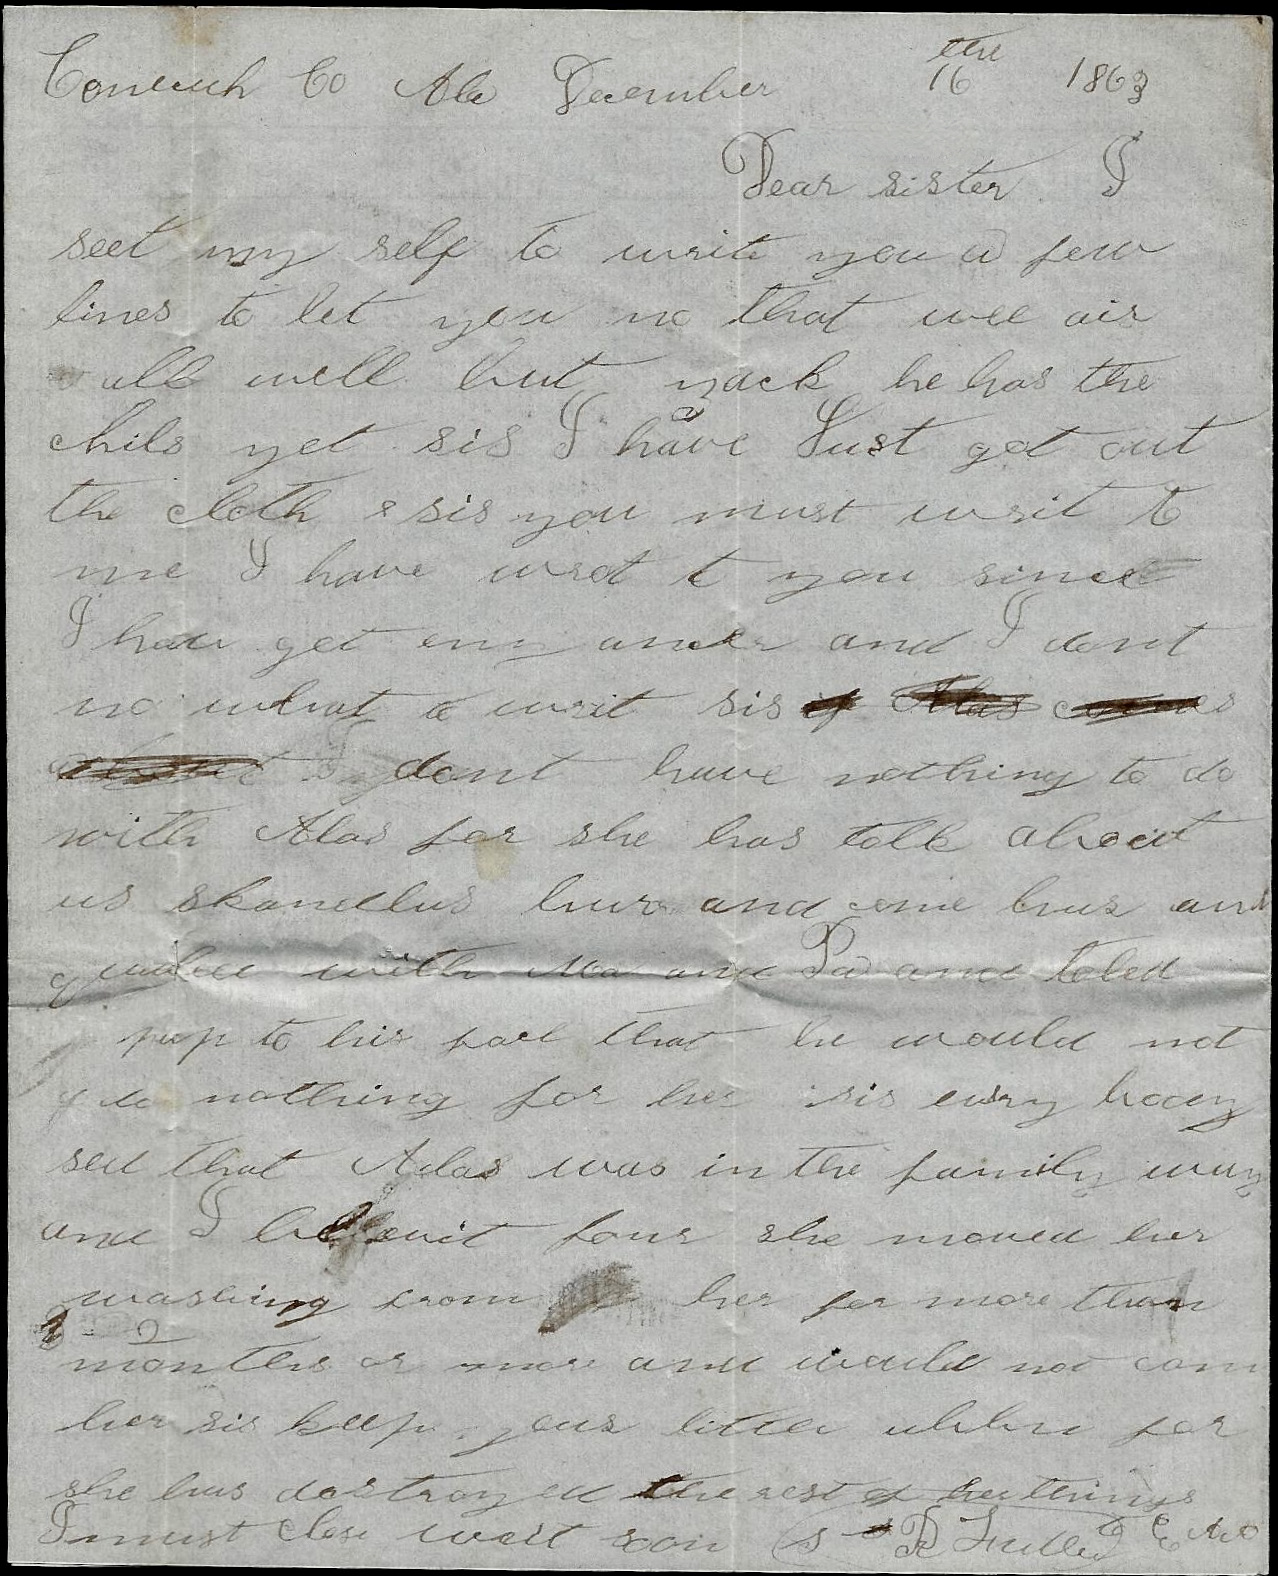 Conecuh Co Ala December 16 the 1863
Dear sister I
seet my self to write you a few
lines to let you no that wee air
all well but zack he has the
chils yet sis I have Just got out
the cloth & sis you must writ to
me I have wrot t you since
I hav get eny anser and I dont
no what to writ sis if Alas comes
about I dont have nothing to do
with Alas for she has talk about
us skandlus and come and
with Ma and Pa and teled
pap to his face that he would not
do nothing for her sis evry body
sed that Adas was in the family way
and I beleveit four she moved her
washing from her for more than
2
months or more and would not com
her sis keep your litter for
she has destroyed the rest of her things
I must close writ soon S R Fuller to E